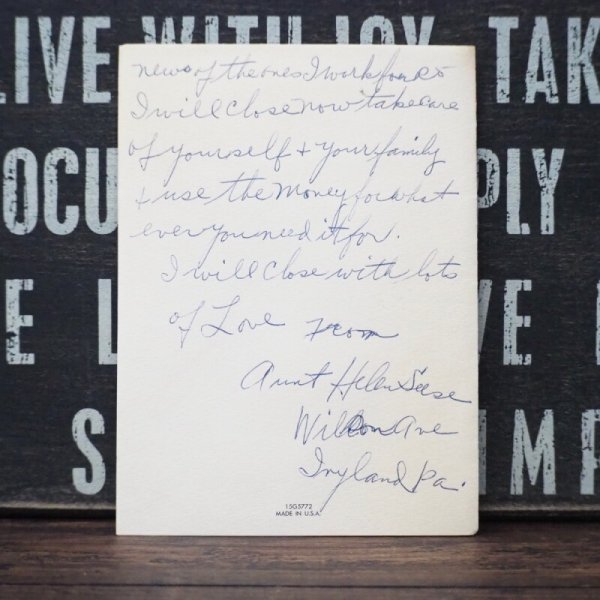 LIVE WITH JOY TAK
OCU PLY
E L VE E
S IMP
news of the ones I work for so
I will close now take care
of yourself + your family
+ use the money for what
ever you need it for.
I will close with lots
of Love From
Aunt Helen Seese
Ave
Ivyland Pa.
15G5772
MADE IN U.S.A.